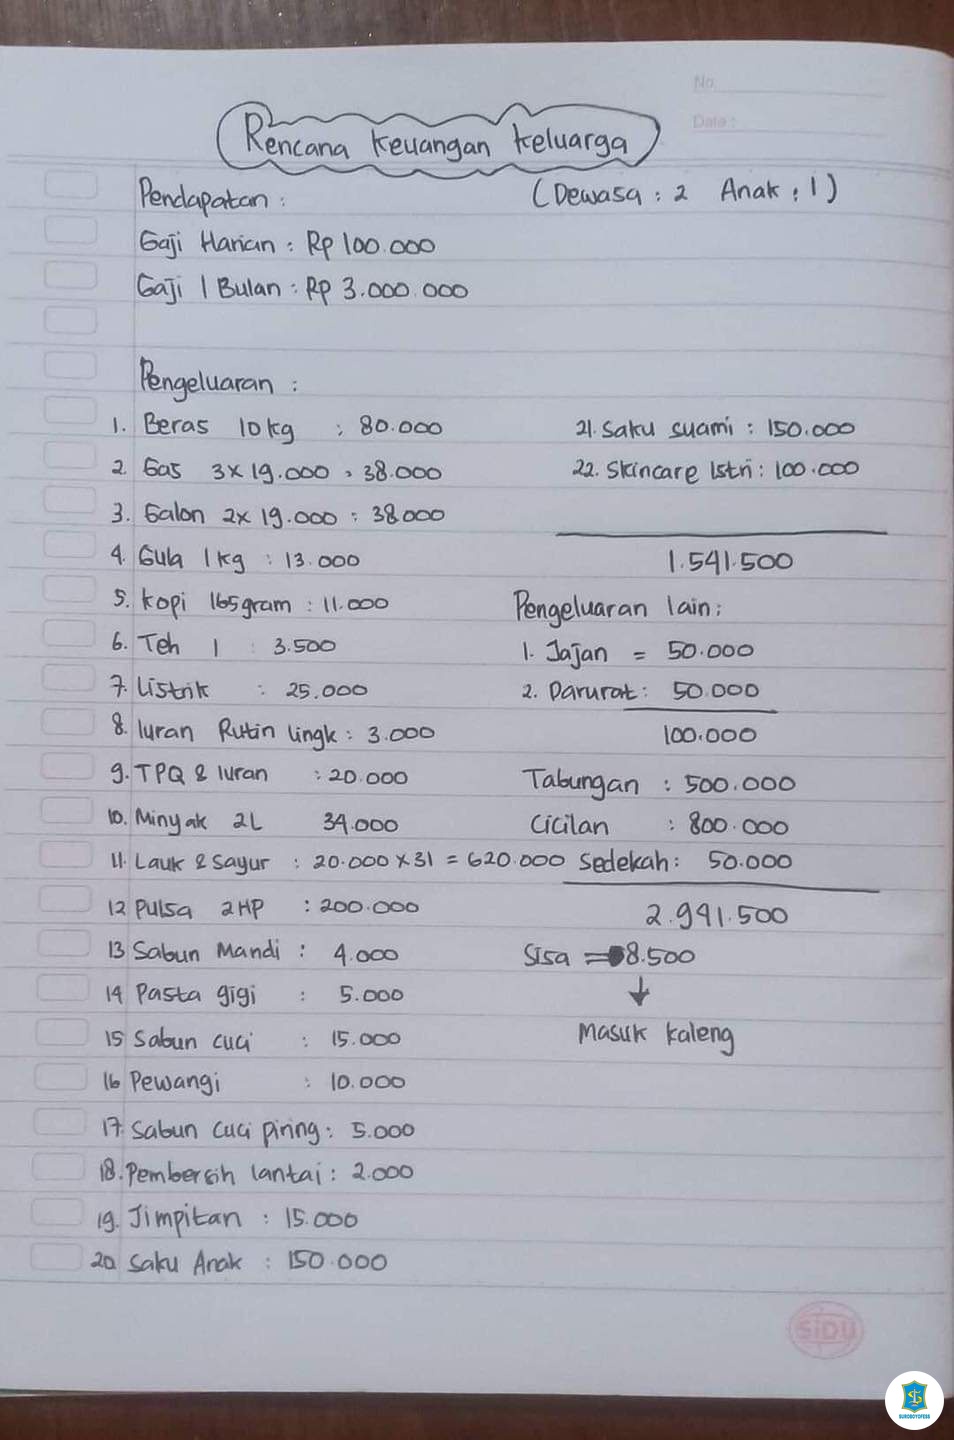 No.
Date :
Rencana Keuangan Keluarga
Pendapatan :
(Dewasa : 2 Anak : 1)
Gaji Harian : Rp 100.000
Gaji 1 Bulan : Rp 3.000.000
Pengeluaran :
1. Beras 10 kg : 80.000
2. Gas 3x 19.000 : 38.000
3. Galon 2x 19.000 : 38.000
4. Gula 1 kg : 13.000
5. Kopi 165 gram : 11.000
6. Teh 1 : 3.500
7. Listrik : 25.000
8. Iuran Rutin Lingk : 3.000
9. TPQ & Iuran : 20.000
10. Minyak 2L 34.000
11. Lauk & Sayur : 20.000 x 31 = 620.000
12 Pulsa 2 HP : 200.000
13 Sabun Mandi : 4.000
14 Pasta gigi : 5.000
15 Sabun cuci : 15.000
16 Pewangi : 10.000
17. Sabun cuci piring : 5.000
18. Pembersih lantai : 2.000
19. Jimpitan : 15.000
20 Saku Anak : 150.000
21. Saku suami : 150.000
22. Skincare Istri : 100.000
1.541.500
Pengeluaran lain :
1. Jajan = 50.000
2. Darurat : 50.000
100.000
Tabungan : 500.000
Cicilan : 800.000
Sedekah : 50.000
2.991.500
Sisa = 8.500
↓
Masuk Kaleng
SiDU
SUROBOYOFESS